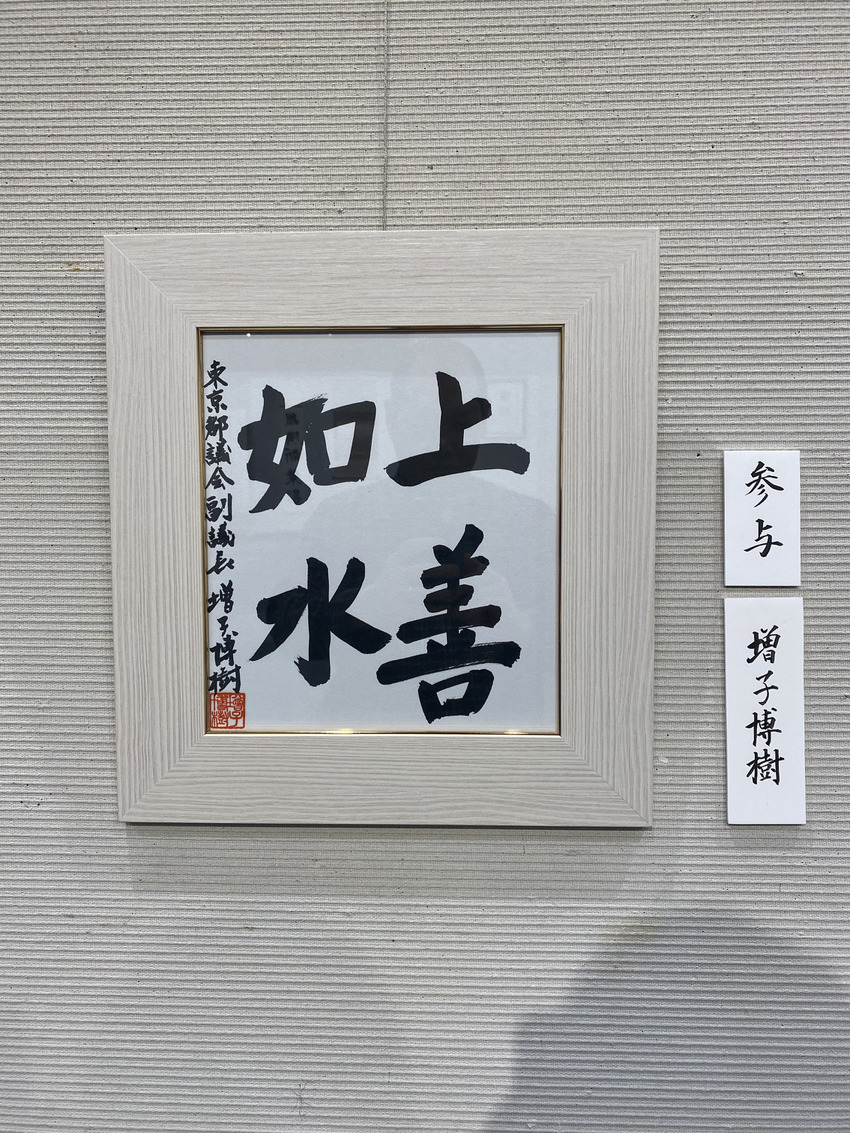 上善
如水
東京都議会副議長 増子博樹
参与
増子博樹